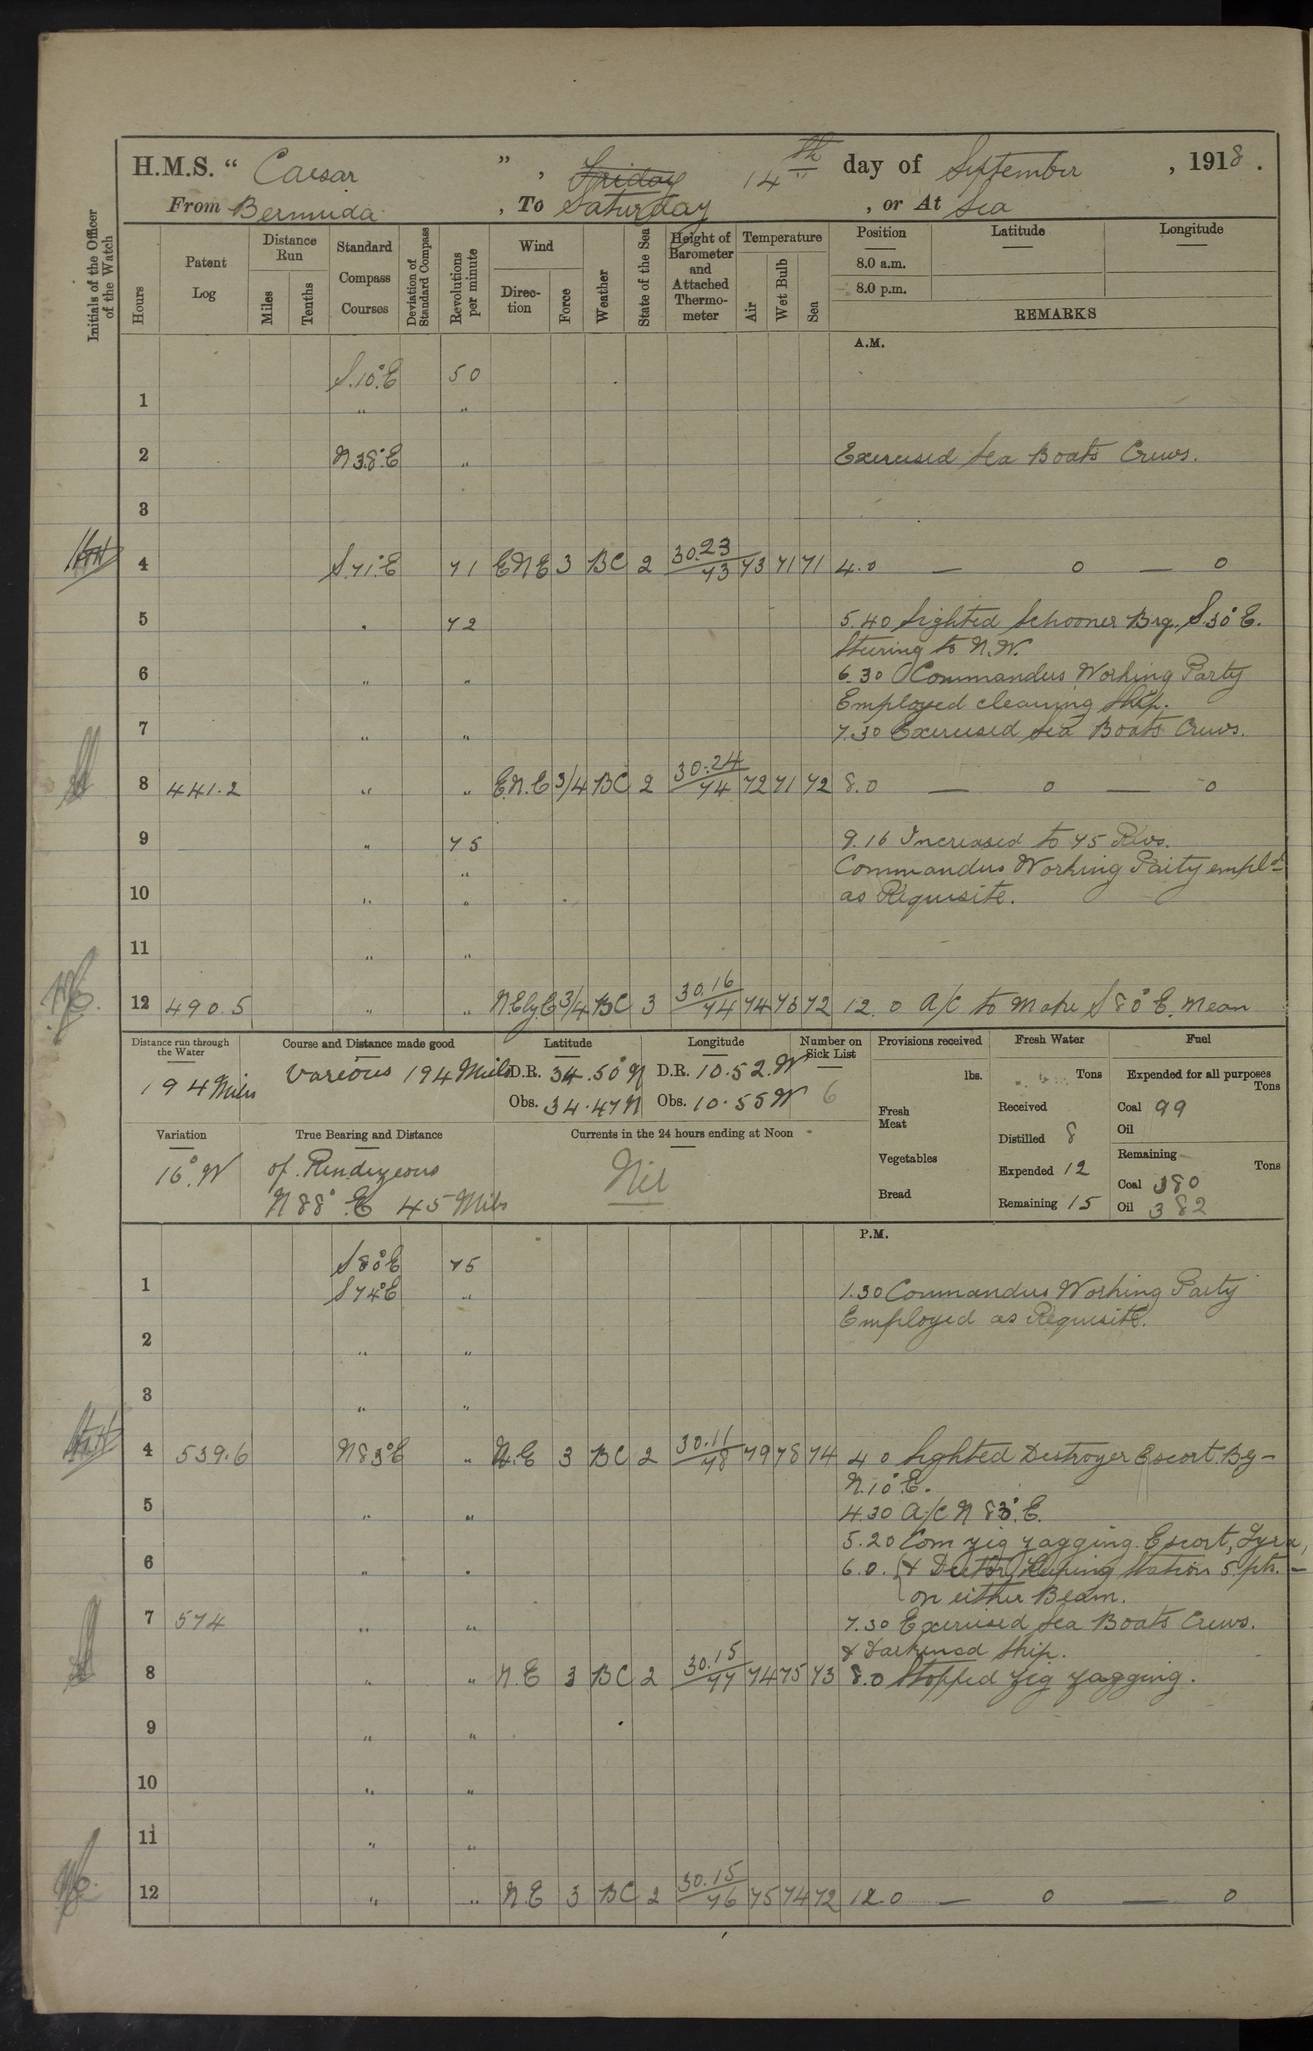 H.M.S. " Caesar ", Friday 14th day of September, 1918.
From Bermuda, To Saturday, or At Sea
Initials of the Officer of the Watch
Hours
Patent Log
Distance Run
Miles
Tenths
Standard Compass Courses
Deviation of Standard Compass
Revolutions per minute
Wind
Direc-tion
Force
Weather
State of the Sea
Height of Barometer and Attached Thermo-meter
Temperature
Air
Wet Bulb
Sea
Position
Latitude
Longitude
8.0 a.m.
8.0 p.m.
REMARKS
A.M.
S.10°.E 50
1 " "
2 N38°.E " Exercised Sea Boats Crews.
3
4 S.71°.E 71 ENE 3 BC 2 30.23/73 73 71 71 4.0 — 0 — 0
5 " 72 5.40 Sighted Schooner Brg. S.30°E.
Steering to N.W.
6 " " 6.30 Commanders Working Party
Employed cleaning Ship.
7 " " 7.30 Exercised Sea Boats Crews.
8 441.2 " " E.N.E 3/4 BC 2 30.24/74 72 71 72 8.0 — 0 — 0
9 " 75 9.16 Increased to 75 Revs.
" Commanders Working Party empld
10 " " as Requisite.
11 " "
12 490.5 " " N.E by E 3/4 BC 3 30.16/74 74 73 72 12.0 A/C to Make S80°E. Mean
Distance run through the Water
194 Miles
Course and Distance made good
Various 194 Miles
Latitude
D.R. 34.50°N
Obs. 34.47N
Longitude
D.R. 10.52.W
Obs. 10.55W
Number on Sick List
6
Provisions received
lbs.
Fresh Meat
Vegetables
Bread
Fresh Water
Tons
Received
Distilled 8
Expended 12
Remaining 15
Fuel
Expended for all purposes
Tons
Coal 99
Oil
Remaining
Tons
Coal 380
Oil 382
Variation
16°.W
True Bearing and Distance
of Rendezvous
N88°.E 45 Miles
Currents in the 24 hours ending at Noon
Nil
P.M.
S80°E 75
1 S74°E " 1.30 Commanders Working Party
Employed as Requisite.
2 " "
3 " "
4 539.6 N83°E " N.E 3 BC 2 30.11/78 79 78 74 4.0 Sighted Destroyer Escort. Bg—
N.10°.E.
5 " " 4.30 A/C N 83°.E.
5.20 Com zig zagging. Escort, Lyra,
6 " " 6.0. & Keeping Station 5 pts. —
on either Beam.
7 574 " " 7.30 Exercised Sea Boats Crews.
& Darkened Ship.
8 " " N.E 3 BC 2 30.15/77 74 75 73 8.0 Stopped zig zagging.
9 " "
10 " "
11 " "
12 " " N.E 3 BC 2 30.15/76 75 74 72 12.0 — 0 — 0